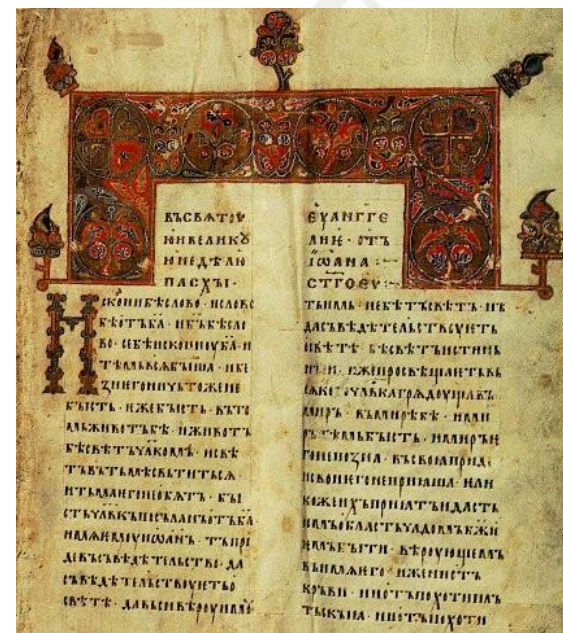 ВЪСВѦТОУ
ЮИВЕЛИКѸ
ЮНЕДѢЛЮ
ПАСХЫ·
Исконибѣслово·ислово
бѣотъба·ибъбѣсло
во·себѣисконоуба·и
тѣмьвьсѧбыша·ибе
знегоничьтожене
бысть·ижебысть·въто
мьживотъбѣ·иживотъ
бѣсвѣтъчлкомъ·исвѣ
тъвътьмѣсвьтитьсѧ·
итьмаѥгонеобѧтъ·бы
стьчлвкъпосъланъотъба
имѧѥмоуиѡанъ·тъпри
девъсъвѣдѣтельство·да
съвѣдѣтельствоуѥтьо
свѣтѣ·давьсивѣроуимоу
ЕУАНГГЕ
ЛИѤ·ОТЪ
ІѠАНА
СТГОЕУ
тьимь·небѣтъсвѣтъ·нъ
дасъвѣдѣтельствоуѥть
освѣтѣ·бѣсвѣтъистинь
ныи·ижепросвѣщаѥтьвь
сѧкогочлвкагрѧдоущавъ
миръ·въмирѣбѣ·ими
рътѣмьбысть·имиръѥ
гонепозна·въсвоꙗприде
исвоиѥгонеприꙗша·ѥли
кожеихъприꙗтъидасть
имъобластьчѧдомъбжи
ѥмъбыти·вѣроующемъ
въимѧѥго·иженеотъ
кръви·ниотъпохотипль
тьскыꙗ·ниотъпохоти